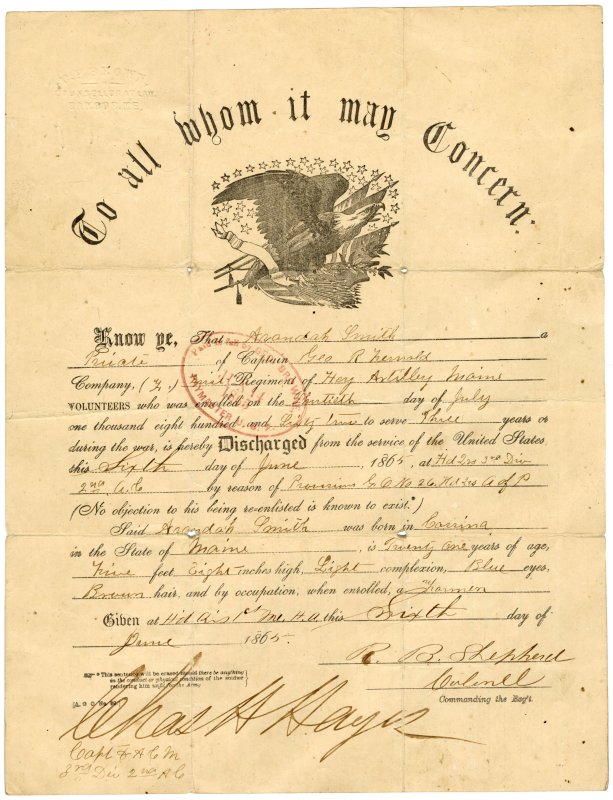 BANGOR, ME.
To all whom it may Concern:
Know ye, That Arandah Smith a
Private of Captain Geo R
Company, ( ) Regiment of Hey Artilley Maine
VOLUNTEERS who was enrolled on the day of July
one thousand eight hundred and Sixty two to serve Three years or
during the war, is hereby Discharged from the service of the United States
this Sixth day of June, 1865, at Hd Qrs 3rd Div
2nd A.C by reason of G O No 26 Hd Qrs A of P
(No objection to his being re-enlisted is known to exist.*)
Said Arandah Smith was born in Corinna
in the State of Maine, is Twenty one years of age,
Five feet Eight inches high, Light complexion, Blue eyes,
Brown hair, and by occupation, when enrolled, a Farmer
Given at Hd Qrs 1st Me. H.A. this Sixth day of
June 1865.
R. B. Shepherd
Colonell
Commanding the Reg't.
*This sentence will be erased should there be anything
in the conduct or physical condition of the soldier
rendering him unfit for the Army
[A. G. O. No. 99.]
Chas H Hayes
Capt & A C M
3rd Div 2nd A C